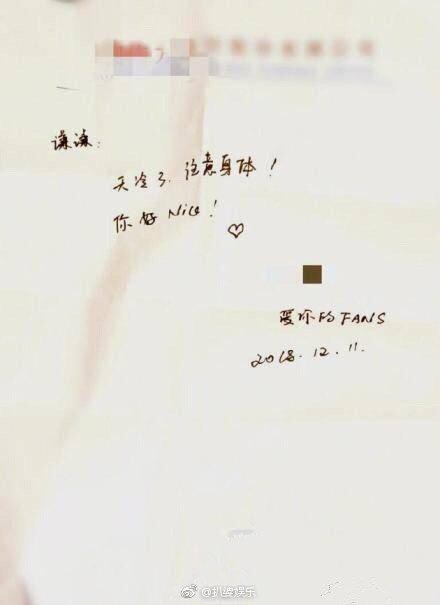 谦谦:
天冷了,注意身体!
你好Nice!
爱你的FANS
2018.12.11.
@扒婆娱乐